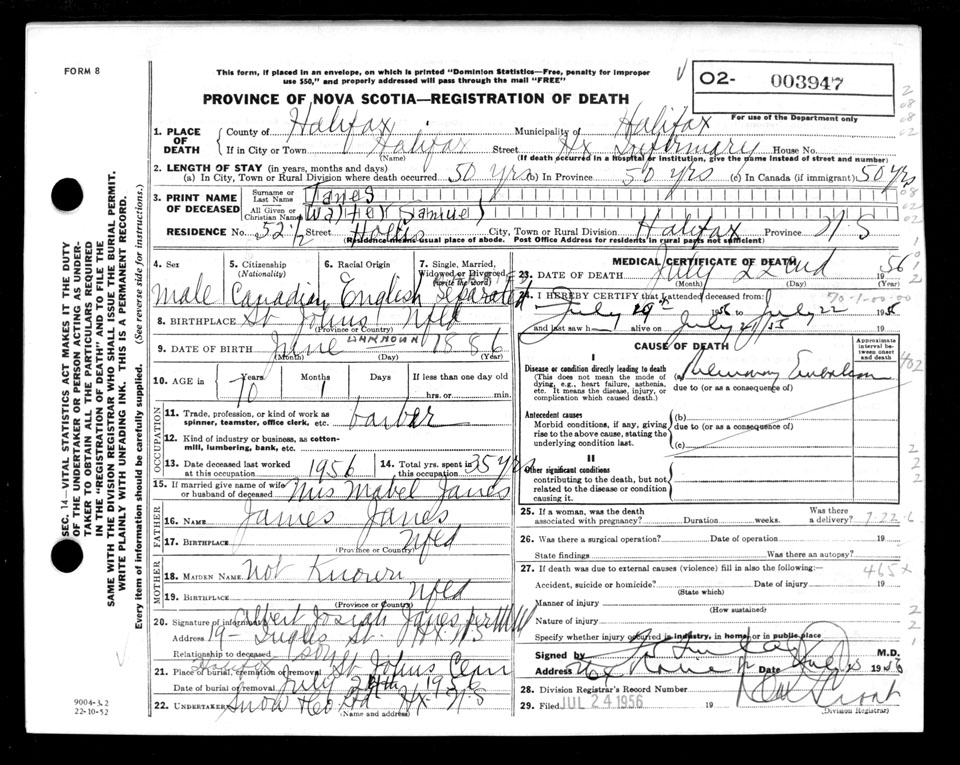 FORM 8
This form, if placed in an envelope, on which is printed "Dominion Statistics—Free, penalty for improper
use $50," and properly addressed will pass through the mail "FREE"
O2- 003947
For use of the Department only
PROVINCE OF NOVA SCOTIA—REGISTRATION OF DEATH
1. PLACE OF DEATH
County of Halifax Municipality of Halifax
If in City or Town Halifax Street Hx Infirmary House No.
(Name) (If death occurred in a hospital or institution, give the name instead of street and number)
2. LENGTH OF STAY (in years, months and days)
(a) In City, Town or Rural Division where death occurred 50 yrs (b) In Province 50 yrs (c) In Canada (if immigrant) 50 yrs
3. PRINT NAME OF DECEASED
Surname or Last Name Janes
All Given or Christian Names Walter Samuel
RESIDENCE No. 52½ Street Hollis City, Town or Rural Division Halifax Province N.S
(Residence means usual place of abode. Post Office Address for residents in rural parts not sufficient)
4. Sex male
5. Citizenship (Nationality) Canadian
6. Racial Origin English
7. Single, Married, Widowed or Divorced (write the word) Separated
8. BIRTHPLACE St Johns Nfld
(Province or Country)
9. DATE OF BIRTH June unknown 1886
(Month) (Day) (Year)
10. AGE in Years 70 Months 1 Days If less than one day old
hrs. or min.
OCCUPATION
11. Trade, profession, or kind of work as spinner, teamster, office clerk, etc. barber
12. Kind of industry or business, as cotton-mill, lumbering, bank, etc.
13. Date deceased last worked at this occupation 1956
14. Total yrs. spent in this occupation 35 yrs
15. If married give name of wife or husband of deceased Mrs Mabel Janes
FATHER
16. NAME James Janes
17. BIRTHPLACE Nfld
(Province or Country)
MOTHER
18. MAIDEN NAME Not Known
19. BIRTHPLACE Nfld
(Province or Country)
20. Signature of informant Albert Josiah Janes per
Address 19- Inglis St. Hx NS
Relationship to deceased (son)
21. Place of burial, cremation or removal Halifax St Johns Cem
Date of burial or removal July 24th 1956
22. UNDERTAKER Snow & Co Ltd Hx NS
(Name and address)
MEDICAL CERTIFICATE OF DEATH
23. DATE OF DEATH July 22end 1956
(Month) (Day)
70-1-00-00
24. I HEREBY CERTIFY that I attended deceased from:
July 19th 1956 to July 22 1956
and last saw h alive on July 19
CAUSE OF DEATH
Approximate interval between onset and death
I
Disease or condition directly leading to death
(This does not mean the mode of dying, e.g., heart failure, asthenia, etc. It means the disease, injury, or complication which caused death.)
(a) Pulmonary Embolism
due to (or as a consequence of)
Antecedent causes
Morbid conditions, if any, giving rise to the above cause, stating the underlying condition last.
(b)
due to (or as a consequence of)
(c)
II
Other significant conditions
contributing to the death, but not related to the disease or condition causing it.
25. If a woman, was the death associated with pregnancy? Duration weeks. Was there a delivery? 7-22-6
26. Was there a surgical operation? Date of operation
State findings Was there an autopsy?
27. If death was due to external causes (violence) fill in also the following:— 465x
Accident, suicide or homicide? Date of injury 19
(State which)
Manner of injury
(How sustained)
Nature of injury
Specify whether injury occurred in industry, in home, or in public place
Signed by M.D.
Address Date 1956
28. Division Registrar's Record Number
29. Filed JUL 24 1956 19
(Division Registrar)
SEC. 14—VITAL STATISTICS ACT MAKES IT THE DUTY
OF THE UNDERTAKER OR PERSON ACTING AS UNDER-
TAKER TO OBTAIN ALL THE PARTICULARS REQUIRED
IN THE "REGISTRATION OF DEATH" AND TO FILE THE
SAME WITH THE DIVISION REGISTRAR WHO SHALL ISSUE THE BURIAL PERMIT.
WRITE PLAINLY WITH UNFADING INK. THIS IS A PERMANENT RECORD.
Every item of information should be carefully supplied. (See reverse side for instructions.)
9004-3.2
22-10-52